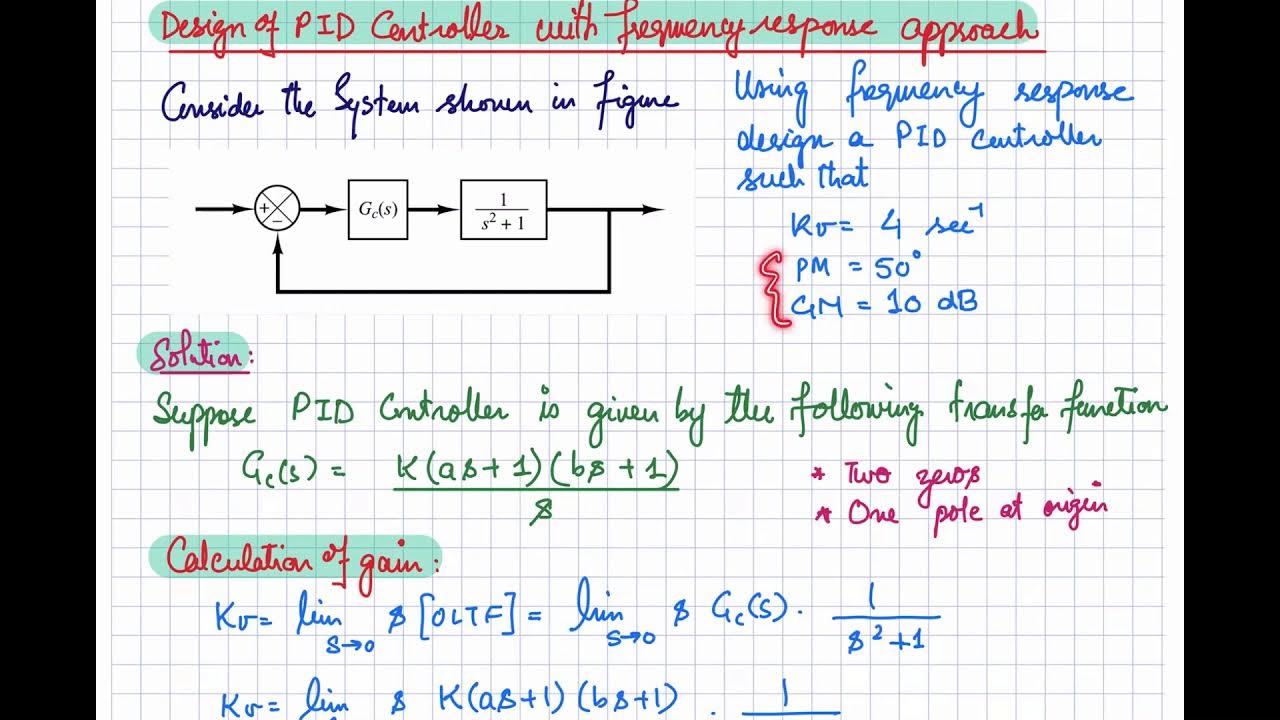 Design of PID Controller with frequency response approach
Consider the System shown in figure
Using frequency response
design a PID Controller
such that
Kv = 4 sec⁻¹
PM = 50°
GM = 10 dB
+
−
Gc(s)
1
s² + 1
Solution:
Suppose PID Controller is given by the following transfer function
Gc(s) = K(as+1)(bs+1)
s
* Two zeros
* One pole at origin
Calculation of gain:
Kv = lim s [OLTF] = lim s Gc(s) · 1
s→0 s→0 s²+1
Kv = lim s K(as+1)(bs+1) . 1